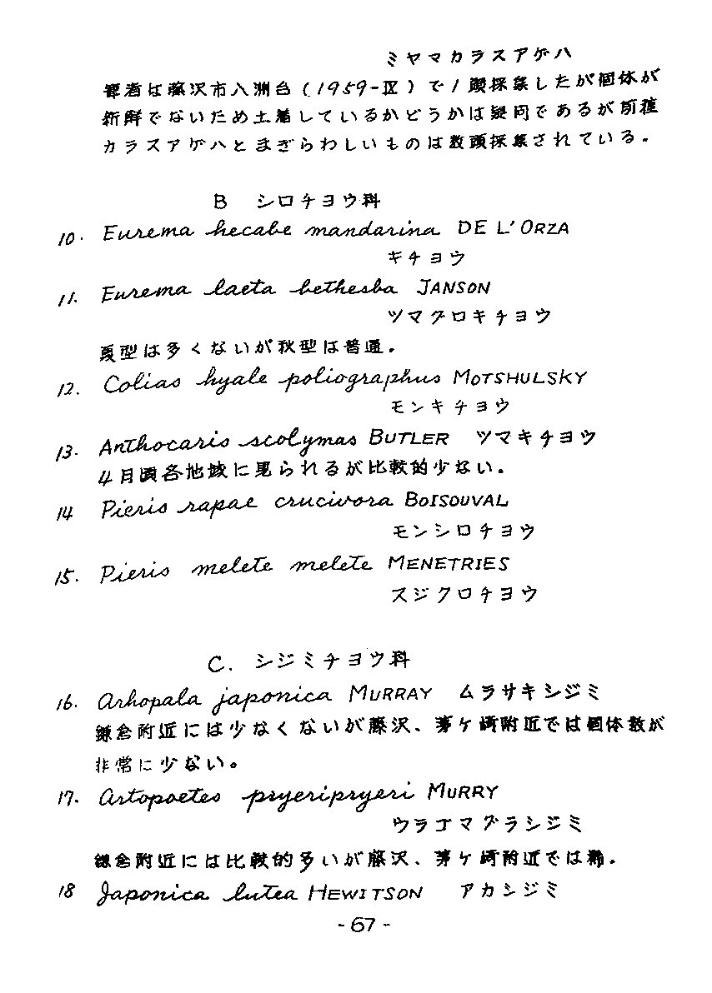 ミヤマカラスアゲハ
筆者は藤沢市八洲台(1959-Ⅳ)で1頭採集したが個体が
新鮮でないため土着しているかどうかは疑問であるが前種
カラスアゲハとまぎらわしいものは数頭採集されている。
B シロチョウ科
10. Eurema hecabe mandarina DE L'ORZA
キチョウ
11. Eurema laeta bethesba JANSON
ツマグロキチョウ
夏型は多くないが秋型は普通。
12. Colias hyale poliographus MOTSHULSKY
モンキチョウ
13. Anthocaris scolymas BUTLER ツマキチョウ
4月頃各地域に見られるが比較的少ない。
14 Pieris rapae crucivora BOISOUVAL
モンシロチョウ
15. Pieris melete melete MENETRIES
スジクロチョウ
C. シジミチョウ科
16. Arhopala japonica MURRAY ムラサキシジミ
鎌倉附近には少なくないが藤沢、茅ケ崎附近では個体数が
非常に少ない。
17. Artopoetes pryeripryeri MURRY
ウラゴマグラシジミ
鎌倉附近には比較的多いが藤沢、茅ケ崎附近では稀。
18 Japonica lutea HEWITSON アカシジミ
-67-